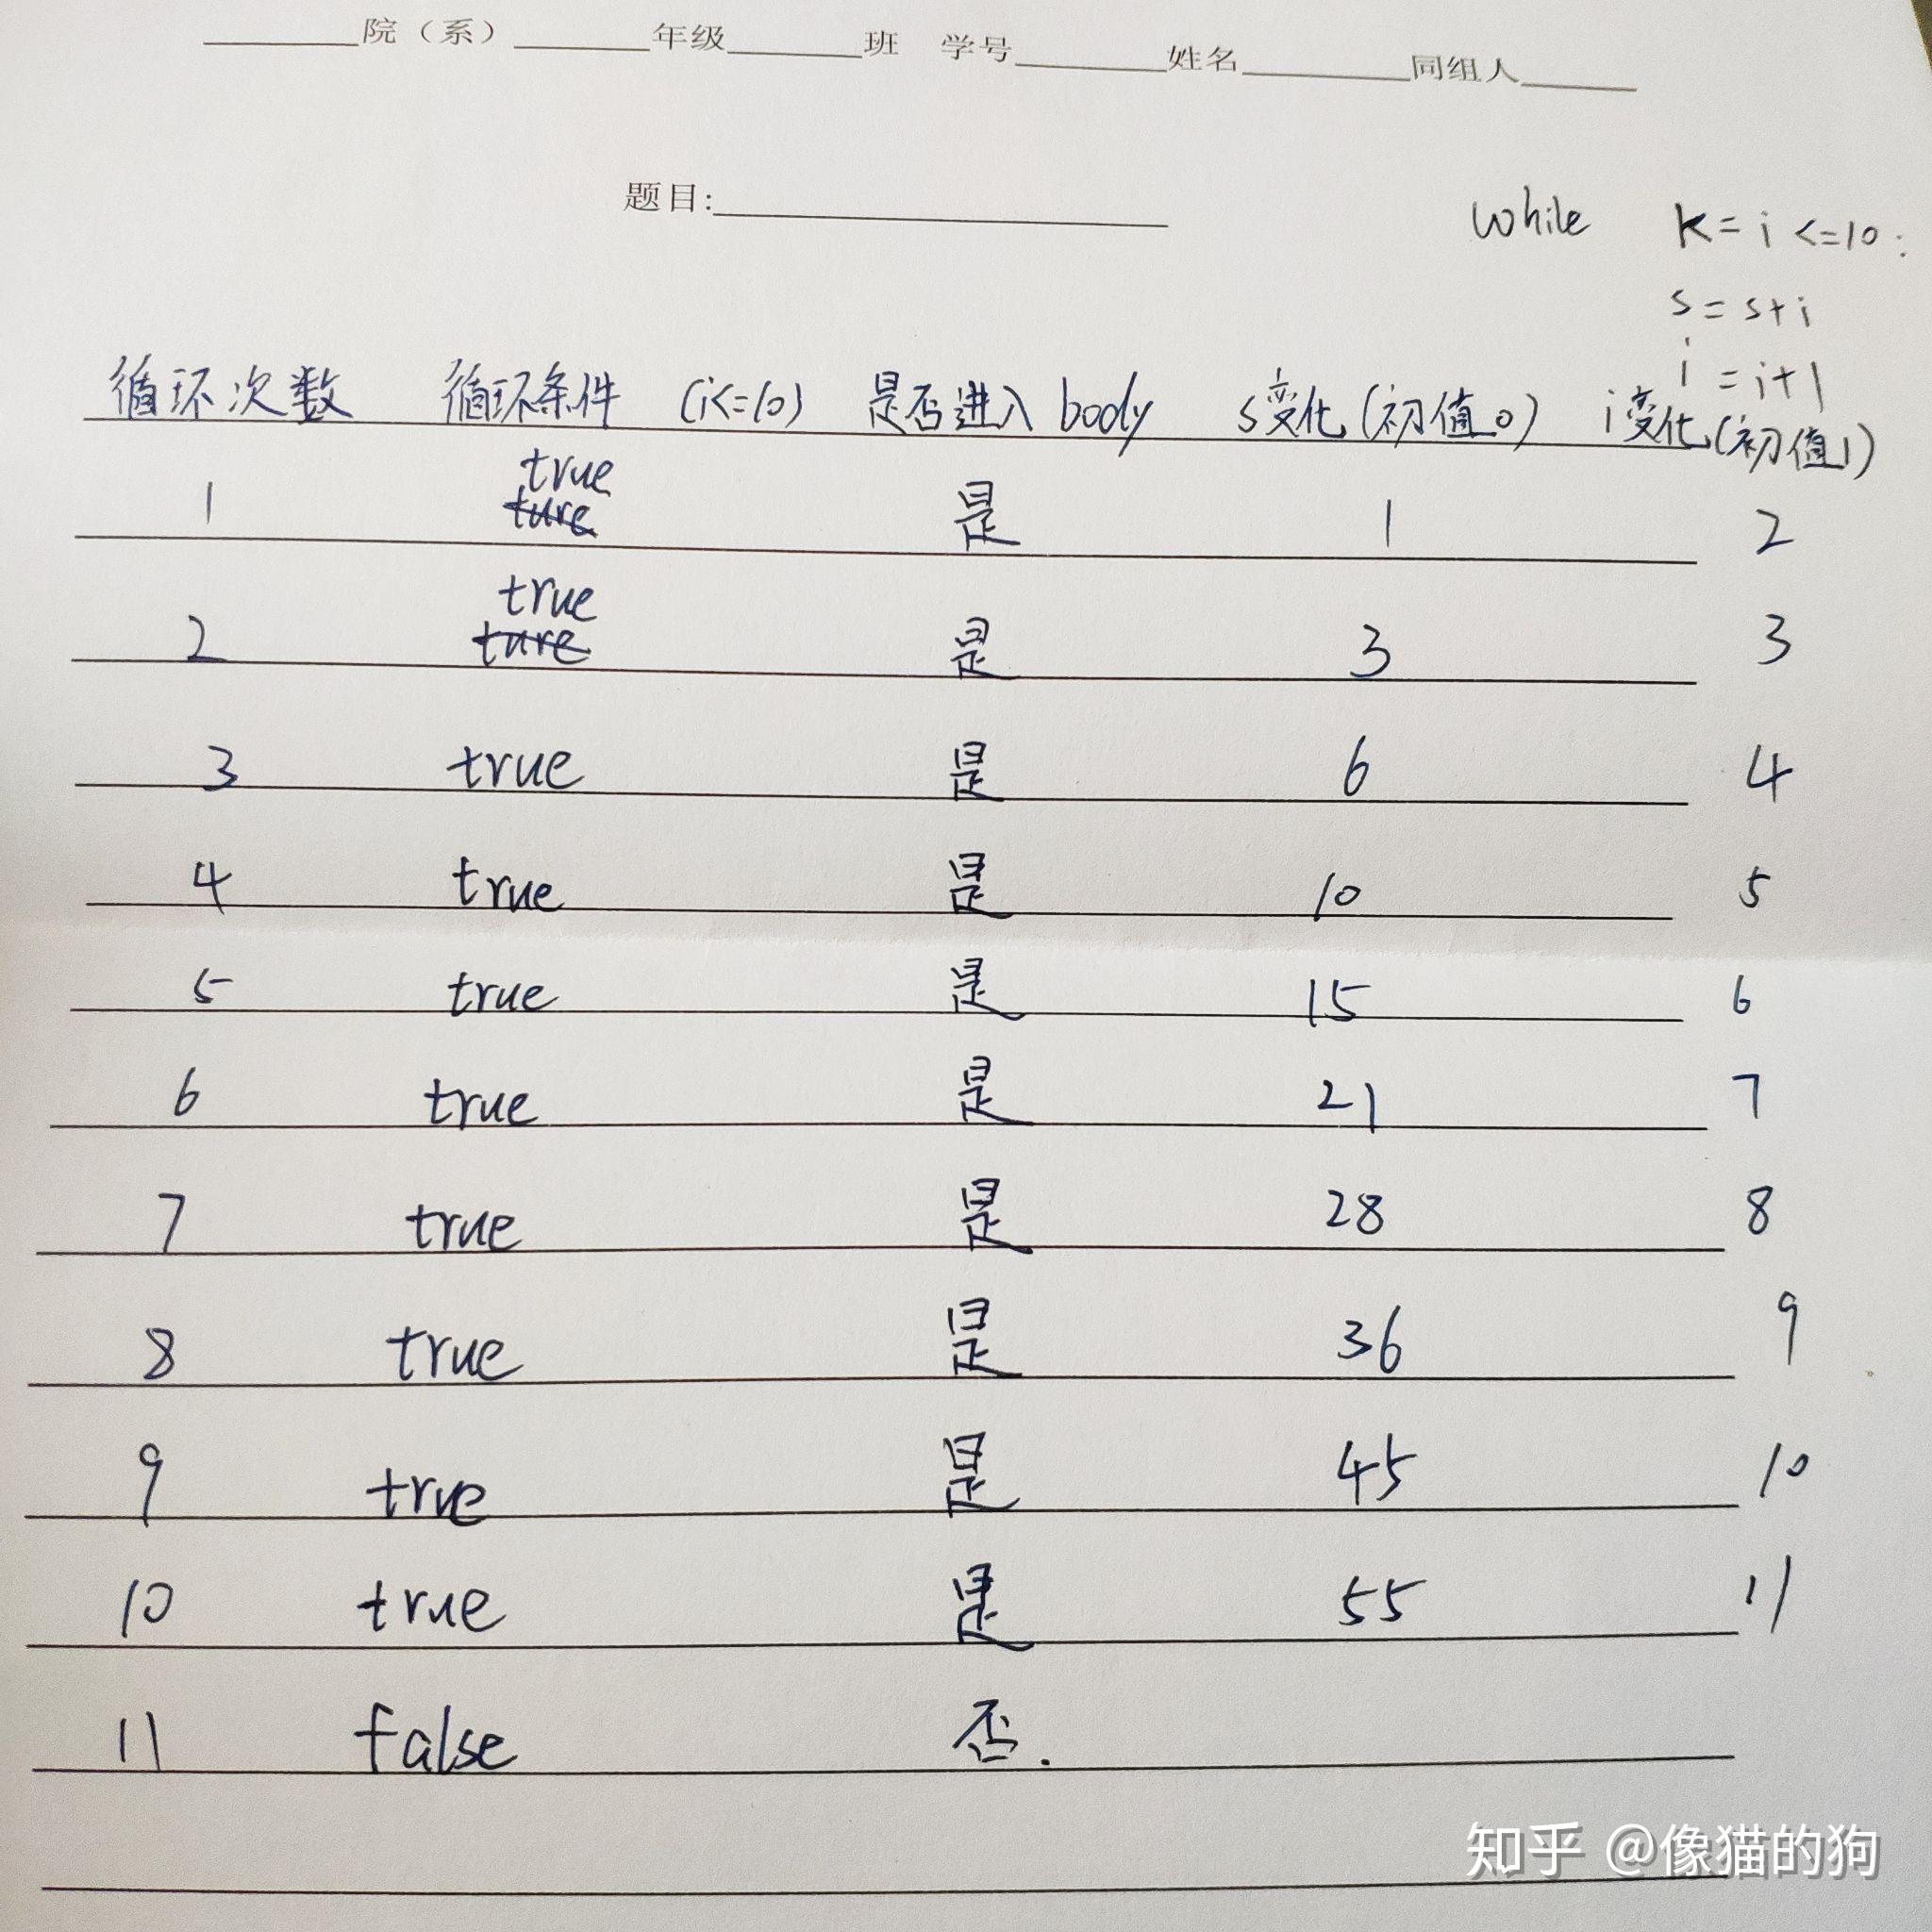 院（系） 年级 班 学号 姓名 同组人
题目:
while k = i <=10 :
s = s+i
i = i+1
循环次数 循环条件 (i<=10) 是否进入 body s变化(初值0) i变化(初值1)
true
1 ture 是 1 2
true
2 ture 是 3 3
3 true 是 6 4
4 true 是 10 5
5 true 是 15 6
6 true 是 21 7
7 true 是 28 8
8 true 是 36 9
9 true 是 45 10
10 true 是 55 11
11 false 否.
知乎 @像猫的狗